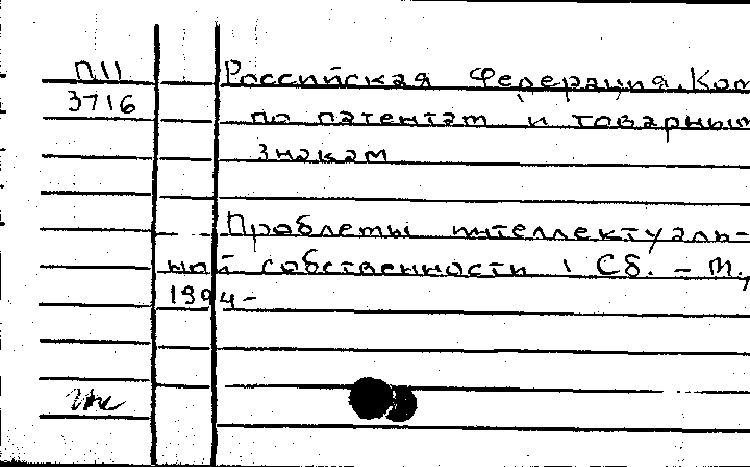 П11
3716
Российская Федерация. Ком
по патентам и товарным
знакам
Проблемы интеллектуаль-
ной собственности : Сб. - М.,
1994-